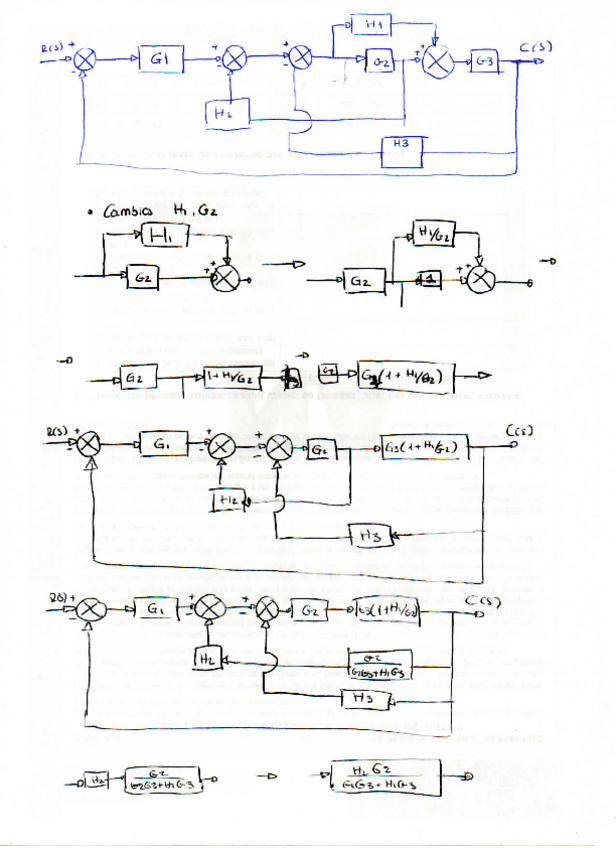 H1
R(s) + - G1 + - + - G2 + + G3 C(s)
H2
H3
• Cambios H1, G2
H1 H1/G2
G2 + + G2 1 + +
G2 1+H1/G2 G2 (1+H1/G2)
R(s) + - G1 + - + - G2 G3(1+H1/G2) C(s)
H2
H3
R(s) + - G1 + - + - G2 G3(1+H1/G2) C(s)
H2 G2
G2G3+H1G3
H3
H2 G2 H2 G2
G2G3+H1G3 G2G3+H1G3